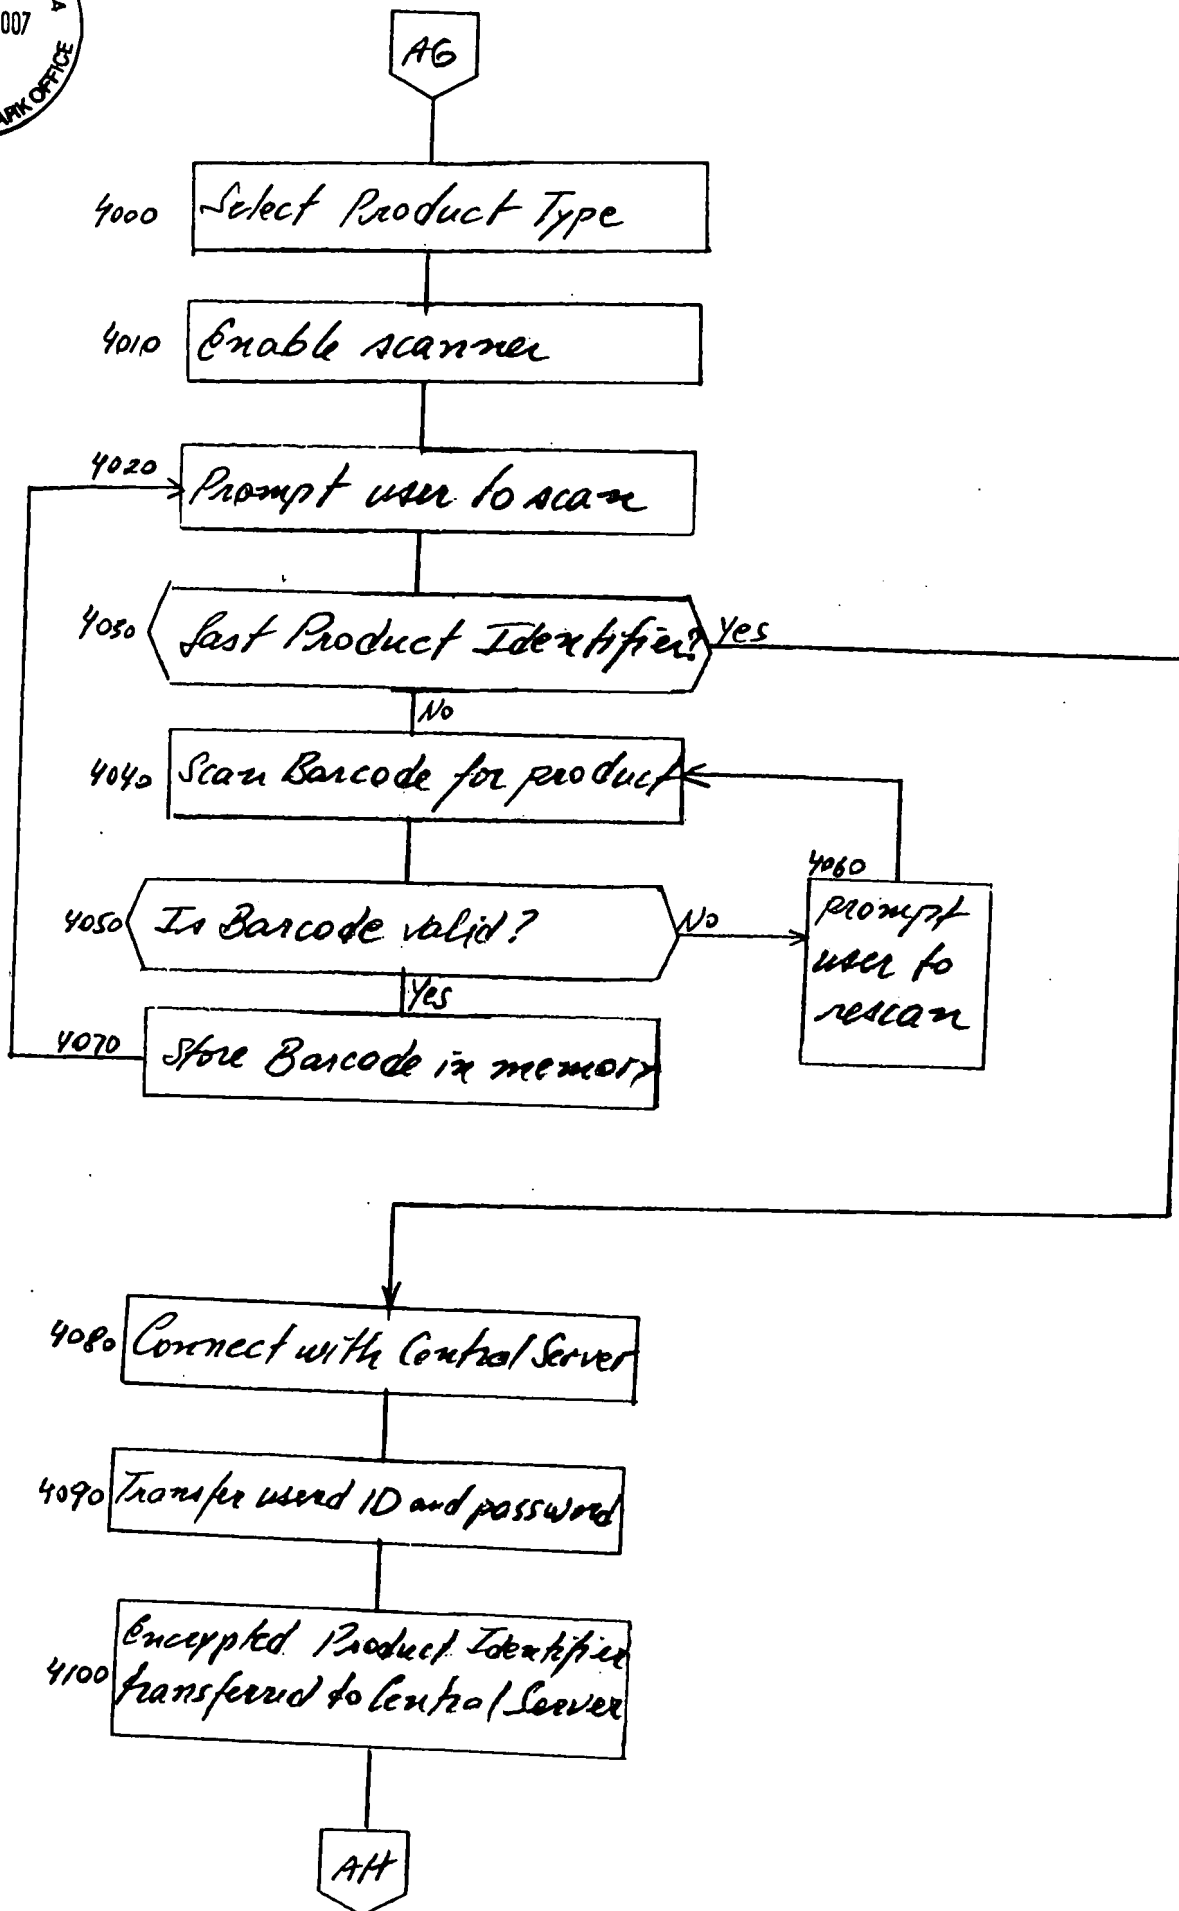 007
A
ARK OFFICE
AG
4000
Select Product Type
4010
Enable scanner
4020
Prompt user to scan
4030
Last Product Identifier?
Yes
No
4040
Scan Barcode for product
4060
prompt
user to
rescan
4050
Is Barcode valid?
No
Yes
4070
Store Barcode in memory
4080
Connect with Central Server
4090
Transfer userd ID and password
4100
Encrypted Product Identifier
transferred to Central Server
AH